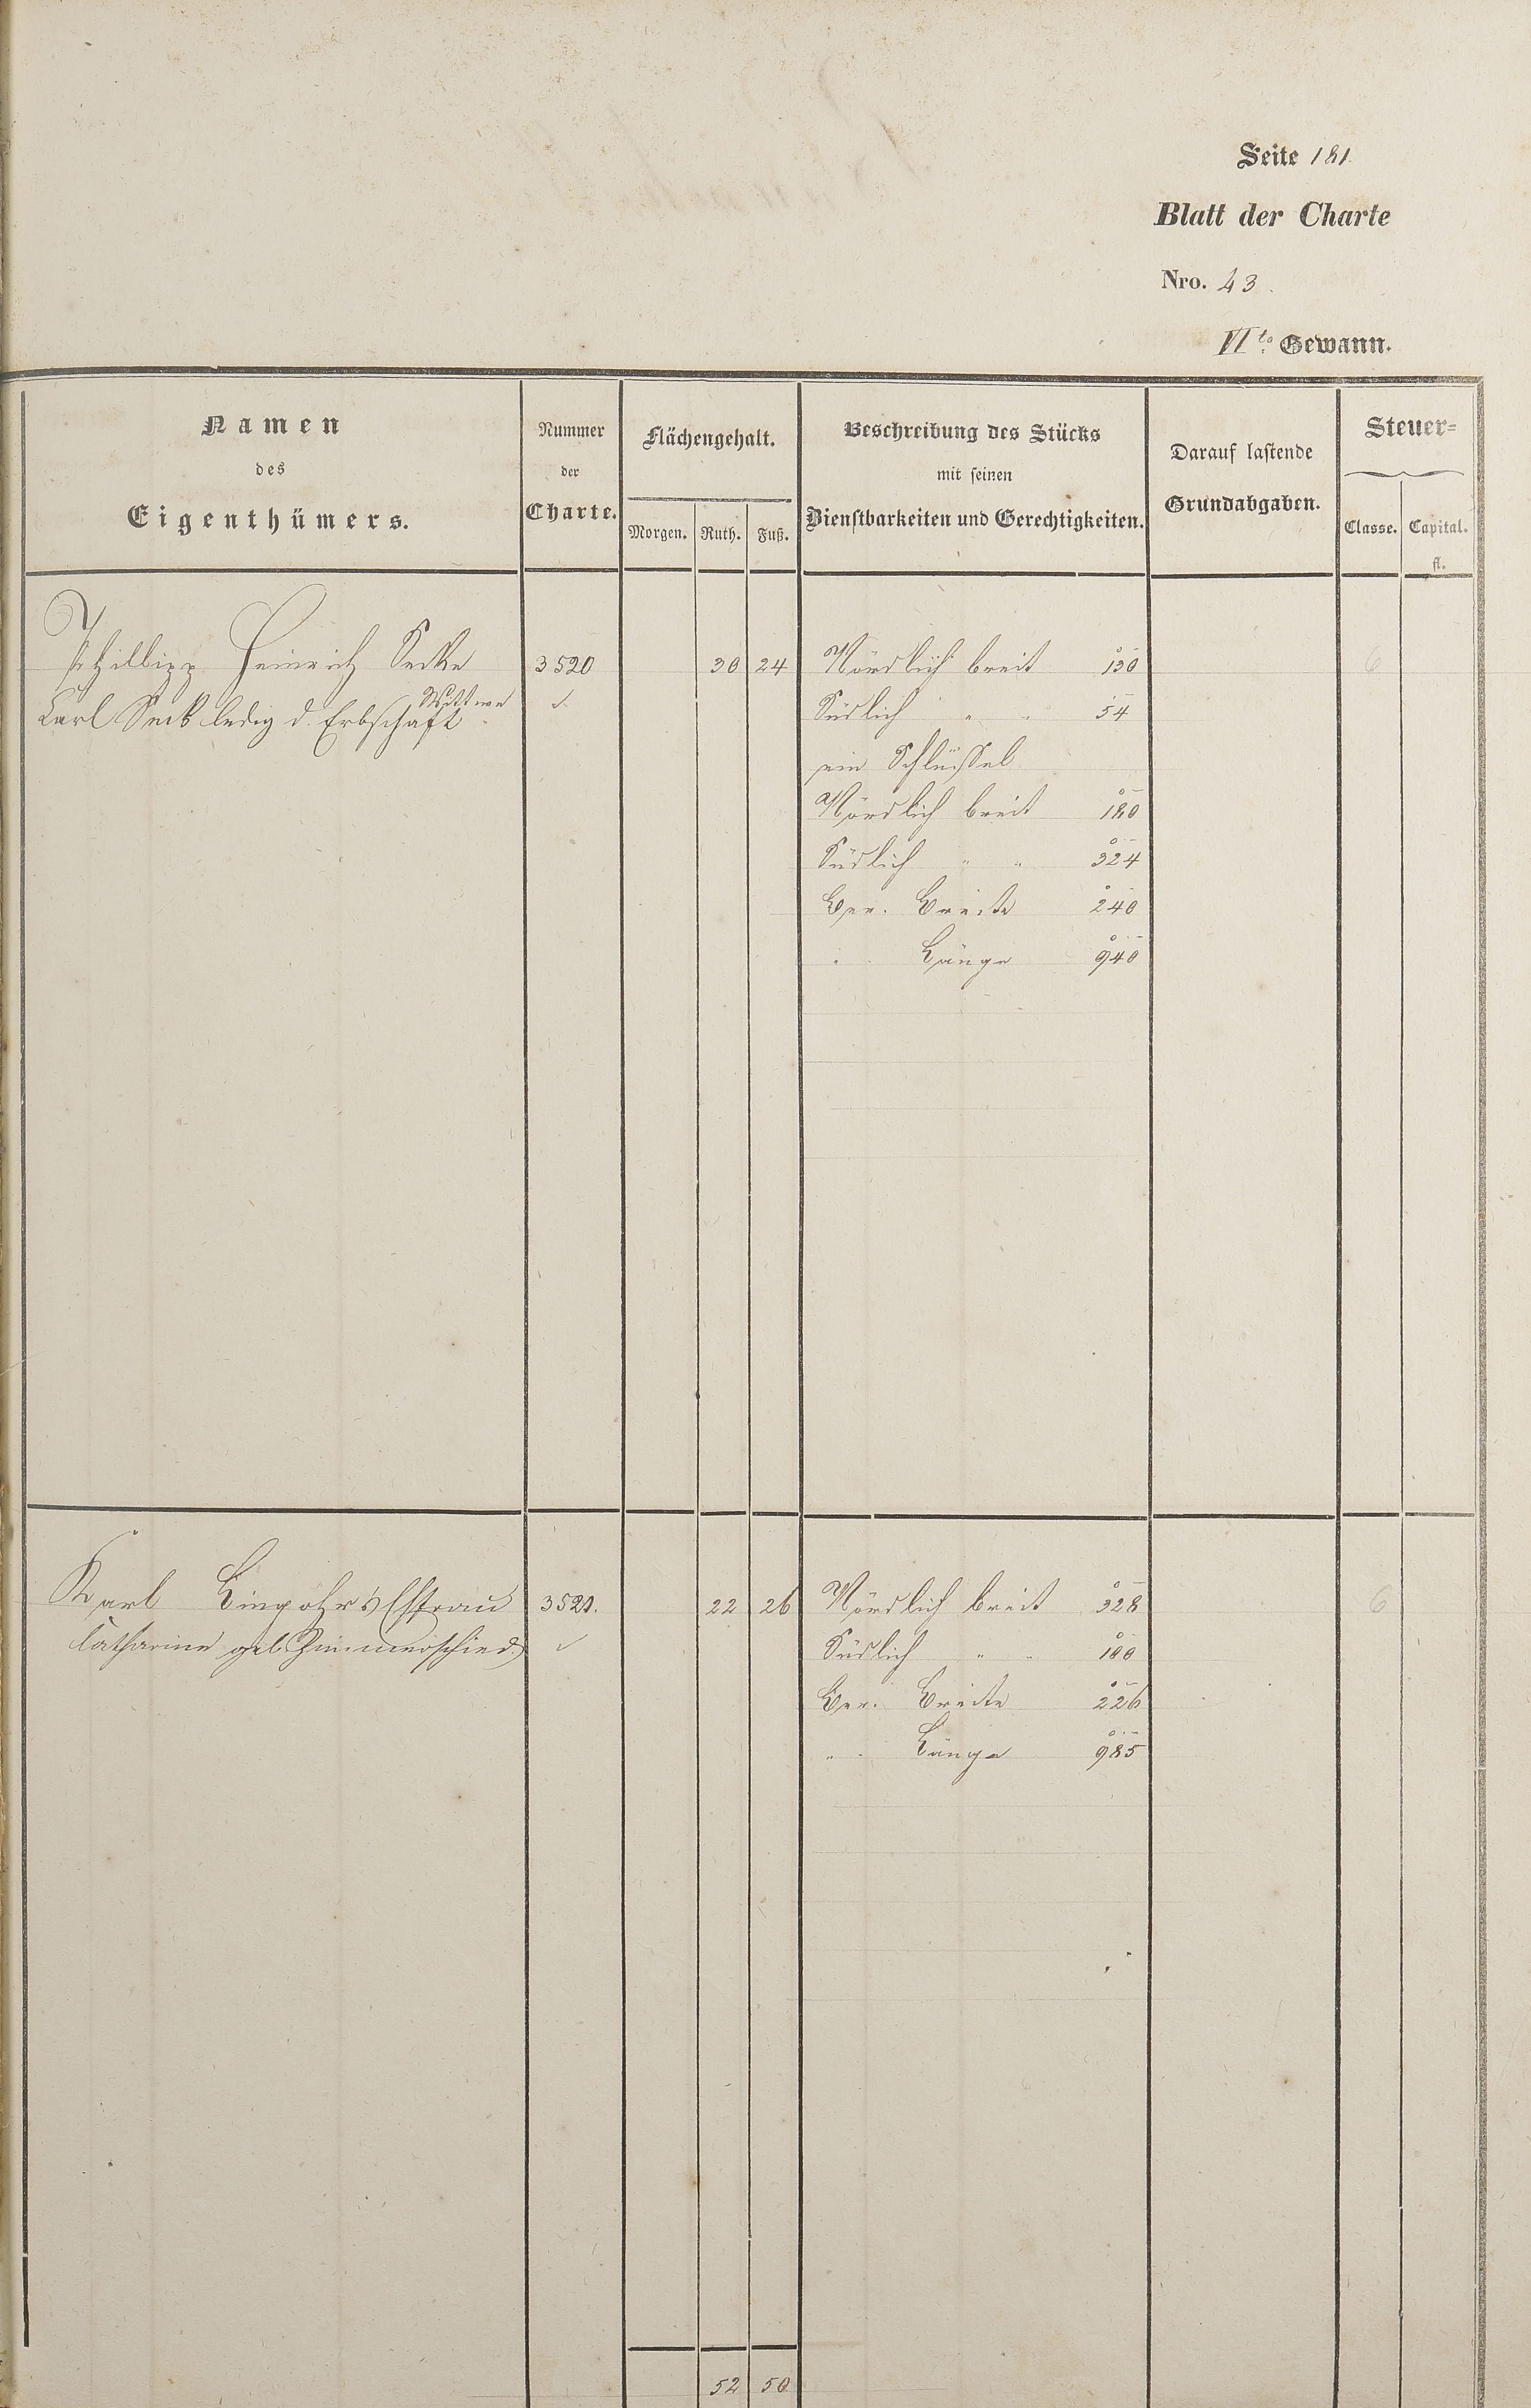 Seite 181
Blatt der Charte
Nro. 43.
VI.te Gewann.
Namen
des
Eigenthümers.
Nummer
der
Charte.
Flächengehalt.
Morgen. Ruth. Fuß.
Beschreibung des Stücks
mit seinen
Dienstbarkeiten und Gerechtigkeiten.
Darauf lastende
Grundabgaben.
Steuer=
Classe. Capital.
fl.
Philipp Heinrich 3520 30 24 Nördlich breit 130 6
Wittwe
Carl Seck ledig d. Erbschaft Südlich " " 54
ein Schlüssel
Nördlich breit 180
Südlich " " 324
Ber. Breite 240
" Länge 940
Karl Ehfrau 3521. 22 26 Nördlich breit 328 6
Catharine geb. Zimmerschied Südlich " " 100
Ber. Breite 226
" Länge 985
52 50